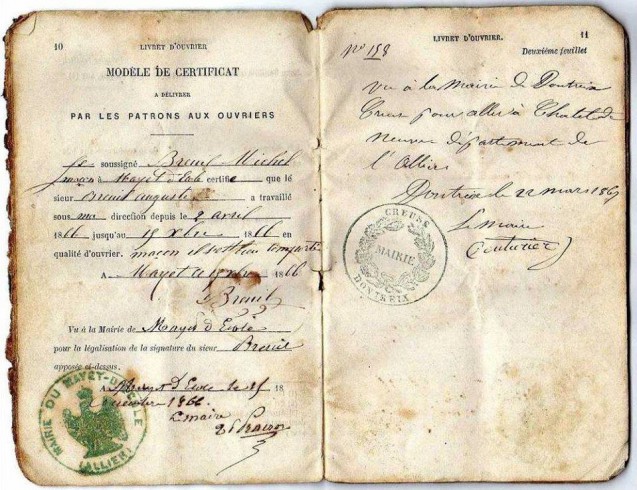 10
LIVRET D'OUVRIER
MODÈLE DE CERTIFICAT
A DÉLIVRER
PAR LES PATRONS AUX OUVRIERS
je soussigné Breuil Michel
maçon à Mayet d'Ecole certifie que le
sieur Breuil auguste a travaillé
sous ma direction depuis le 2 avril
1866 jusqu'au 15 Xbre 1866 en
qualité d'ouvrier. maçon il s'est bien comporté
A Mayet ce 15 Xbre 1866
Breuil
Vu à la Mairie de Mayet d'Ecole
pour la légalisation de la signature du sieur Breuil
apposée ci-dessus.
A Mayet d'Ecole le 15 18
décembre 1866
Le maire
MAIRIE DU MAYET-D'ÉCOLE
(ALLIER)
LIVRET D'OUVRIER.
11
Deuxième feuillet
N° 158
Vu à la Mairie de Dontreix
Creuse pour aller à Chatel de
neuvre département de
l'Allier
Dontreix le 22 mars 1867
Le Maire
Couturier
CREUSE
MAIRIE
DONTREIX